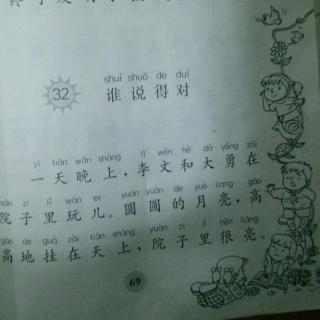 shuí shuō de duì
32 谁说得对
yì tiān wǎn shàng lǐ wén hé dà yǒng zài
一天晚上，李文和大勇在
yuàn zi lǐ wán er yuán yuán de yuè liang gāo
院子里玩儿。圆圆的月亮，高
gāo de guà zài tiān shàng yuàn zi lǐ hěn liàng
高地挂在天上，院子里很亮。
69